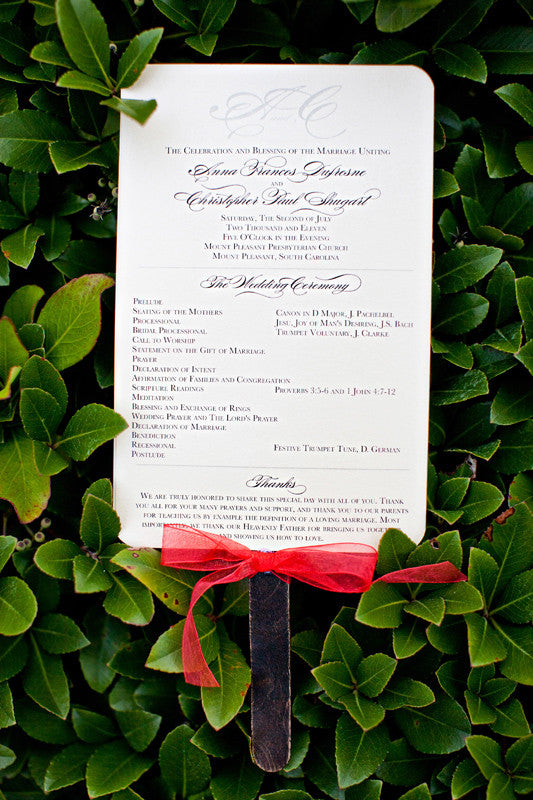 A and C
The Celebration and Blessing of the Marriage Uniting
Anna Frances Dufresne
and
Christopher Paul Shugart
Saturday, The Second of July
Two Thousand and Eleven
Five O'Clock in the Evening
Mount Pleasant Presbyterian Church
Mount Pleasant, South Carolina
The Wedding Ceremony
Prelude
Seating of the Mothers Canon in D Major, J. Pachelbel
Processional Jesu, Joy of Man's Desiring, J.S. Bach
Bridal Processional Trumpet Voluntary, J. Clarke
Call to Worship
Statement on the Gift of Marriage
Prayer
Declaration of Intent
Affirmation of Families and Congregation
Scripture Readings Proverbs 3:5-6 and 1 John 4:7-12
Meditation
Blessing and Exchange of Rings
Wedding Prayer and The Lord's Prayer
Declaration of Marriage
Benediction
Recessional Festive Trumpet Tune, D. German
Postlude
Thanks
We are truly honored to share this special day with all of you. Thank
you all for your many prayers and support, and thank you to our parents
for teaching us by example the definition of a loving marriage. Most
importantly, we thank our Heavenly Father for bringing us together
and showing us how to love.